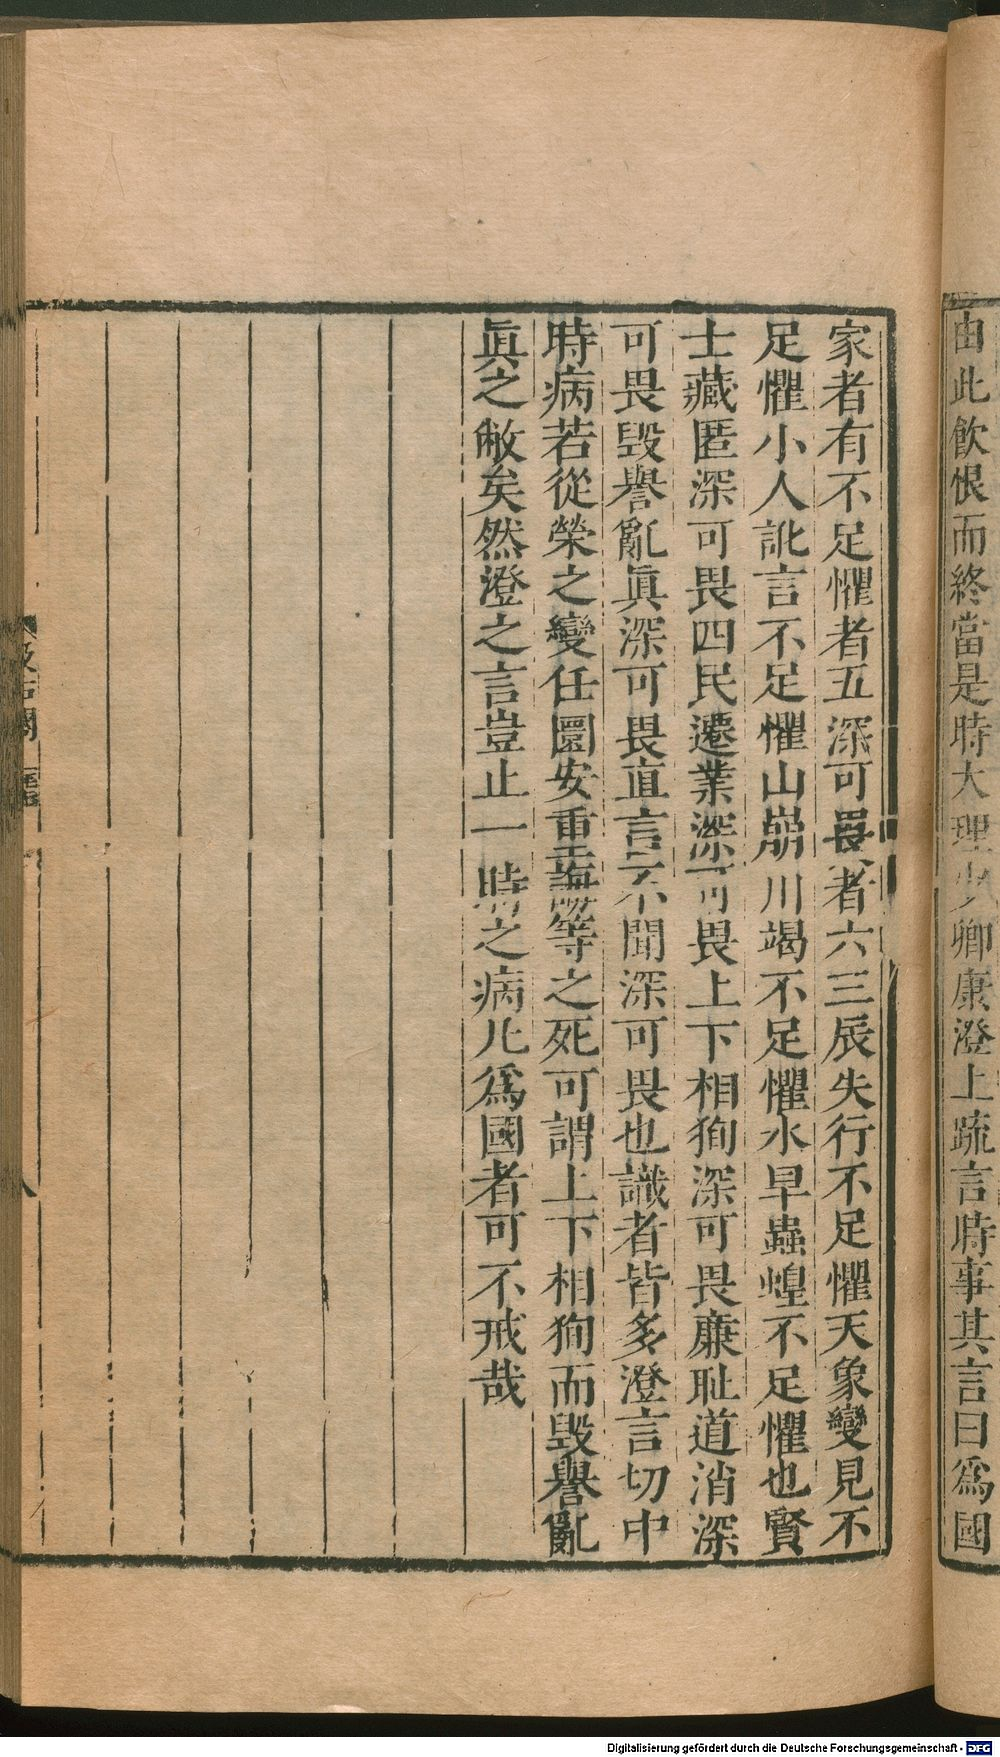 由此飲恨而終當是時大理少卿康澄上疏言時事其言曰爲國
家者有不足懼者五深可畏者六三辰失行不足懼天象變見不
足懼小人訛言不足懼山崩川竭不足懼水旱蟲蝗不足懼也賢
士藏匿深可畏四民遷業深可畏上下相狥深可畏廉恥道消深
可畏毀譽亂眞深可畏直言不聞深可畏也識者皆多澄言切中
時病若從榮之變任圜安重誨等之死可謂上下相狥而毀譽亂
眞之敝矣然澄之言豈止一時之病凡爲國者可不戒哉
汲古閣
八
Digitalisierung gefördert durch die Deutsche Forschungsgemeinschaft - DFG